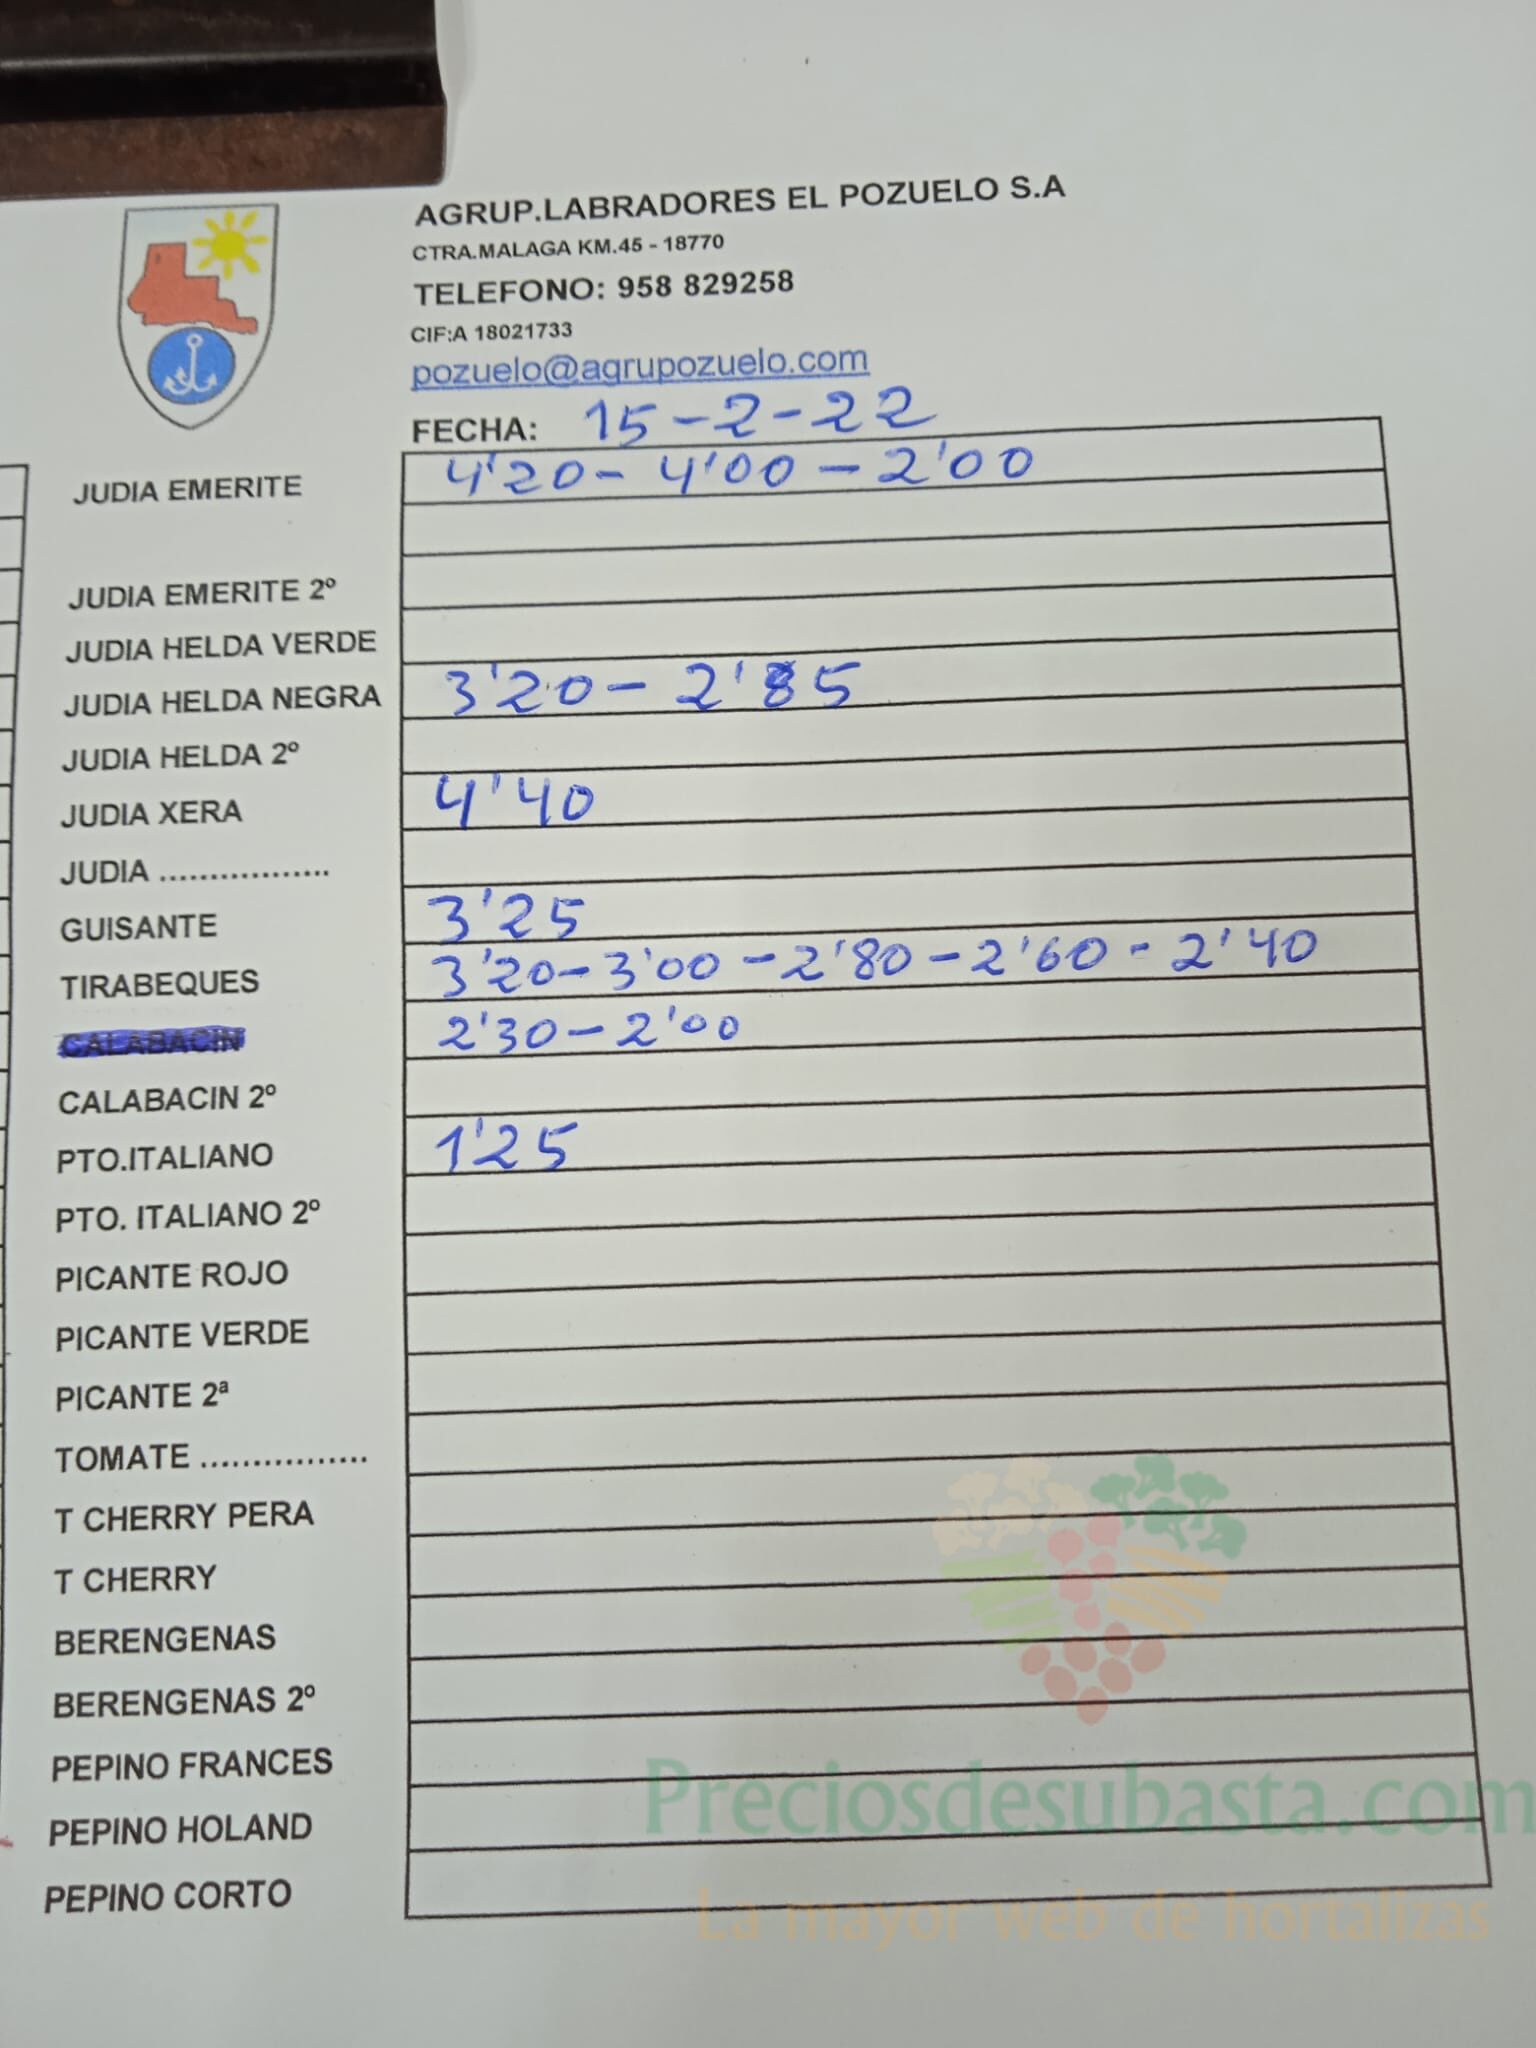 AGRUP.LABRADORES EL POZUELO S.A
CTRA.MALAGA KM.45 - 18770
TELEFONO: 958 829258
CIF:A 18021733
pozuelo@agrupozuelo.com
FECHA: 15-2-22
JUDIA EMERITE 4'20- 4'00 - 2'00
JUDIA EMERITE 2º
JUDIA HELDA VERDE
JUDIA HELDA NEGRA 3'20- 2'85
JUDIA HELDA 2º
JUDIA XERA 4'40
JUDIA .................
GUISANTE 3'25
TIRABEQUES 3'20-3'00 -2'80 -2'60 - 2'40
CALABACIN 2'30-2'00
CALABACIN 2º
PTO.ITALIANO 1'25
PTO. ITALIANO 2º
PICANTE ROJO
PICANTE VERDE
PICANTE 2ª
TOMATE ................
T CHERRY PERA
T CHERRY
BERENGENAS
BERENGENAS 2º
PEPINO FRANCES
PEPINO HOLAND
PEPINO CORTO
Preciosdesubasta.com
La mayor web de hortalizas